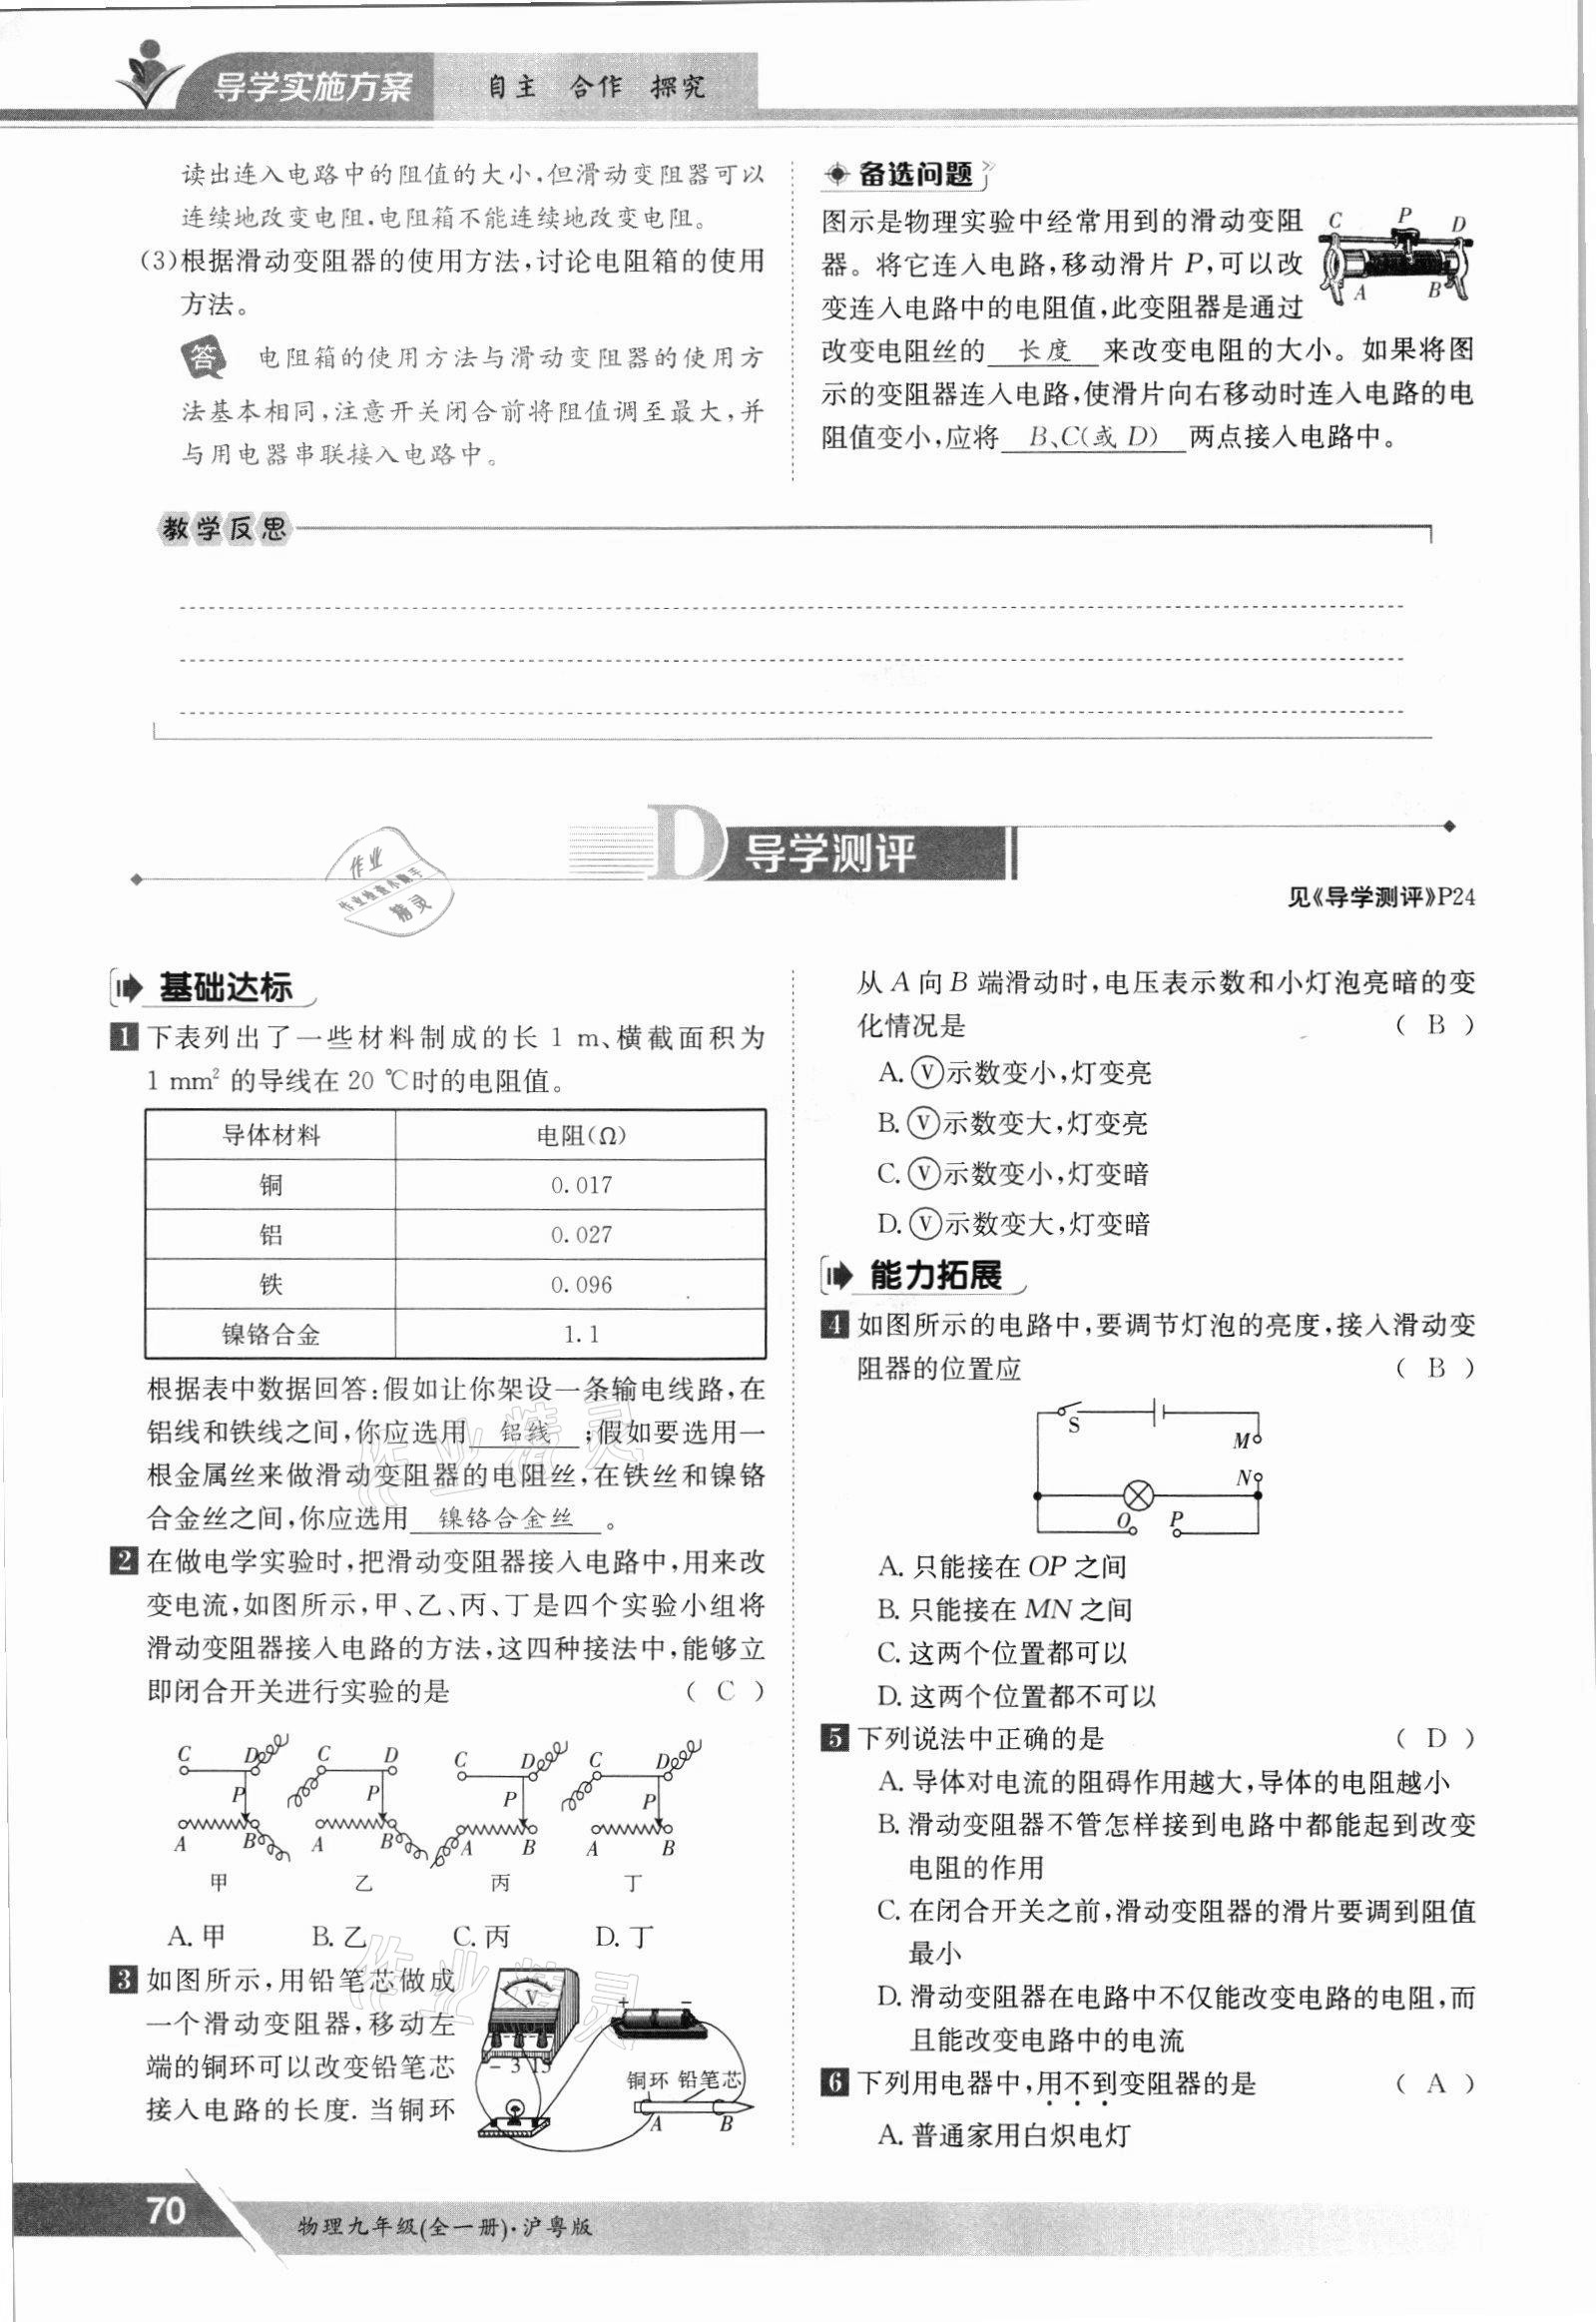 导学实施方案 自主 合作 探究
读出连入电路中的阻值的大小,但滑动变阻器可以
连续地改变电阻,电阻箱不能连续地改变电阻。
(3)根据滑动变阻器的使用方法,讨论电阻箱的使用
方法。
答 电阻箱的使用方法与滑动变阻器的使用方
法基本相同,注意开关闭合前将阻值调至最大,并
与用电器串联接入电路中。
备选问题
图示是物理实验中经常用到的滑动变阻
器。将它连入电路,移动滑片 P,可以改
变连入电路中的电阻值,此变阻器是通过
改变电阻丝的 长度 来改变电阻的大小。如果将图
示的变阻器连入电路,使滑片向右移动时连入电路的电
阻值变小,应将 B、C(或 D) 两点接入电路中。
C P D
A B
教学反思
D 导学测评
见《导学测评》P24
作业
作业检查小助手
精灵
基础达标
1 下表列出了一些材料制成的长 1 m、横截面积为
1 mm² 的导线在 20 ℃时的电阻值。
导体材料 电阻(Ω)
铜 0.017
铝 0.027
铁 0.096
镍铬合金 1.1
根据表中数据回答:假如让你架设一条输电线路,在
铝线和铁线之间,你应选用 铝线 ;假如要选用一
根金属丝来做滑动变阻器的电阻丝,在铁丝和镍铬
合金丝之间,你应选用 镍铬合金丝 。
作业精灵
2 在做电学实验时,把滑动变阻器接入电路中,用来改
变电流,如图所示,甲、乙、丙、丁是四个实验小组将
滑动变阻器接入电路的方法,这四种接法中,能够立
即闭合开关进行实验的是 ( C )
C D C D C D C D
P P P P
A B A B A B A B
甲 乙 丙 丁
A. 甲 B. 乙 C. 丙 D. 丁
作业精灵
3 如图所示,用铅笔芯做成
一个滑动变阻器,移动左
端的铜环可以改变铅笔芯
接入电路的长度. 当铜环
V
- 3 15
+ -
铜环 铅笔芯
A B
从 A 向 B 端滑动时,电压表示数和小灯泡亮暗的变
化情况是 ( B )
A. Ⓥ示数变小,灯变亮
B. Ⓥ示数变大,灯变亮
C. Ⓥ示数变小,灯变暗
D. Ⓥ示数变大,灯变暗
能力拓展
4 如图所示的电路中,要调节灯泡的亮度,接入滑动变
阻器的位置应 ( B )
S
M
N
O P
A. 只能接在 OP 之间
B. 只能接在 MN 之间
C. 这两个位置都可以
D. 这两个位置都不可以
5 下列说法中正确的是 ( D )
A. 导体对电流的阻碍作用越大,导体的电阻越小
B. 滑动变阻器不管怎样接到电路中都能起到改变
电阻的作用
C. 在闭合开关之前,滑动变阻器的滑片要调到阻值
最小
D. 滑动变阻器在电路中不仅能改变电路的电阻,而
且能改变电路中的电流
6 下列用电器中,用不到变阻器的是 ( A )
A. 普通家用白炽电灯
70
物理九年级(全一册)·沪粤版